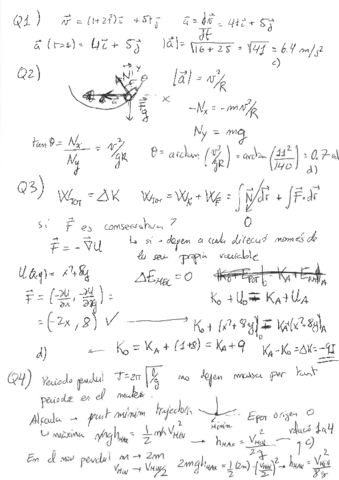 Q1) v = (1+2t²)i + 5tj   a = dv/dt = 4ti + 5j
a(t=1) = 4i + 5j   |a| = √16+25 = √41 = 6.4 m/s²
c)
Q2)
|a| = v²/R
x
-Nx = -mv²/R
Ny = mg
tanθ = Nx/Ny = v²/gR   θ = arctan(v²/gR) = arctan(11²/140) = 0.7
d)
Q3) W_TOT = ΔK   W_TOT = W_N + W_F = ∫N dr + ∫F·dr
0
si F es conservativa?
F = -∇U
la seva propia variable
U(x,y) = x²+8y   ΔE_MEC = 0
K₀ + U₀ = K_A + U_A
F = (-∂U/∂x, -∂U/∂y) =
= (-2x, 8) ✓
d) K₀ = K_A + (1+8) = K_A + 9   K_A - K₀ = ΔK = -9J
Q4) Periode pendul T = 2π√l/g no depen massa per tant
periode es el mateix
Alçada → punt mínim trajectoria   mínim   Epot origen 0
màxima mgh_MAX = ½ m V_MIN²   h_MAX = V_MIN²/2g
c)
En el nou pendul m → 2m
2mgh_MAX = ½(2m)·(V_MIN/2)² → h_MAX = V_MIN²/8g